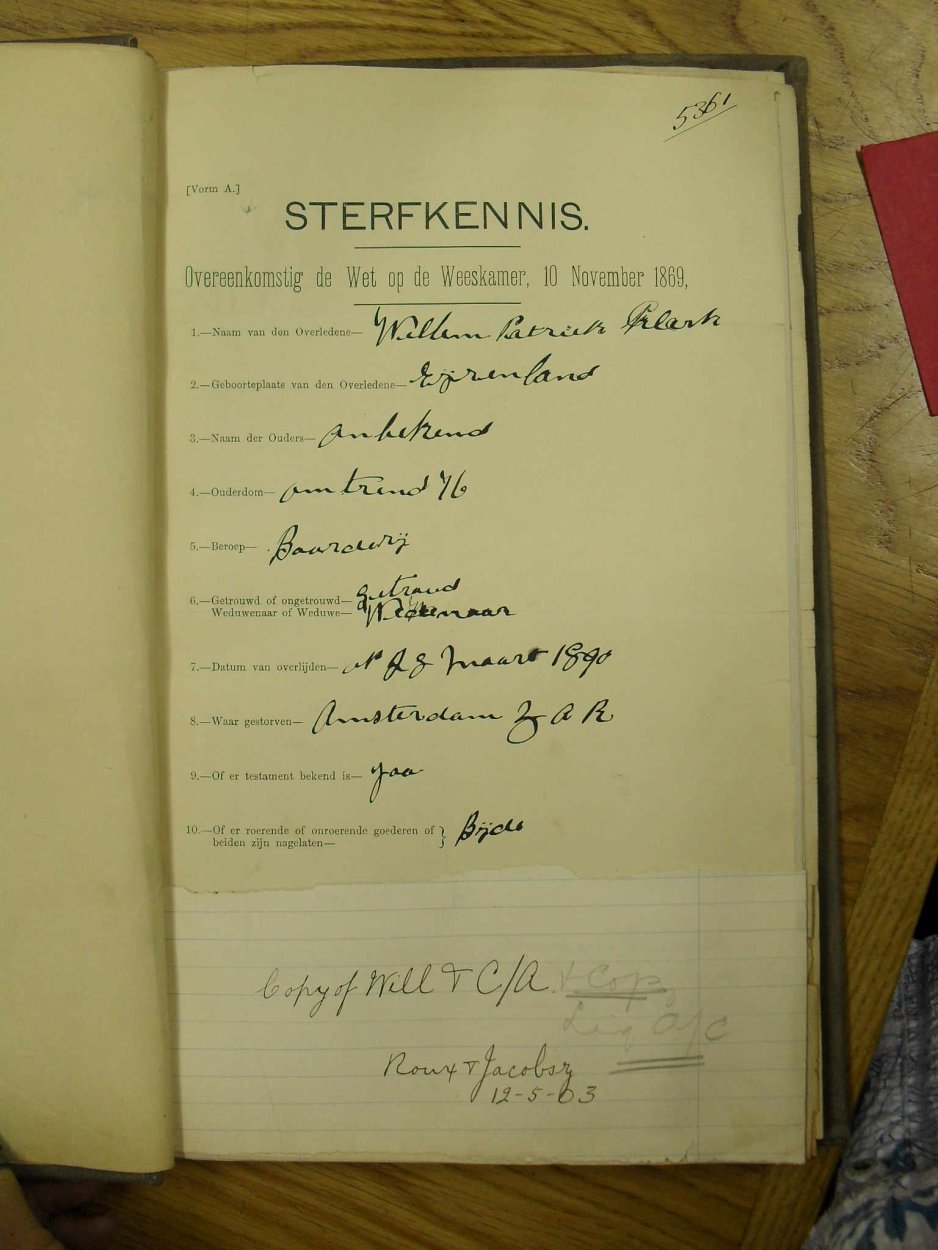 5361
[Vorm A.]
STERFKENNIS.
Overeenkomstig de Wet op de Weeskamer, 10 November 1869,
1.—Naam van den Overledene— Willem Patrick Klark
2.—Geboorteplaats van den Overledene— Eijrenland
3.—Naam der Ouders— onbekend
4.—Ouderdom— omtrend 76
5.—Beroep— Boorderij
6.—Getrouwd of ongetrouwd— getroud
Weduwenaar of Weduwe— Wedenaar
7.—Datum van overlijden— Maart 1890
8.—Waar gestorven— Amsterdam Z A R
9.—Of er testament bekend is— Jaa
10.—Of er roerende of onroerende goederen of
beiden zijn nagelaten— } Bijde
Copy of Will & C/A. & Copy
Liq a/c
Roux & Jacobsz
12-5-03